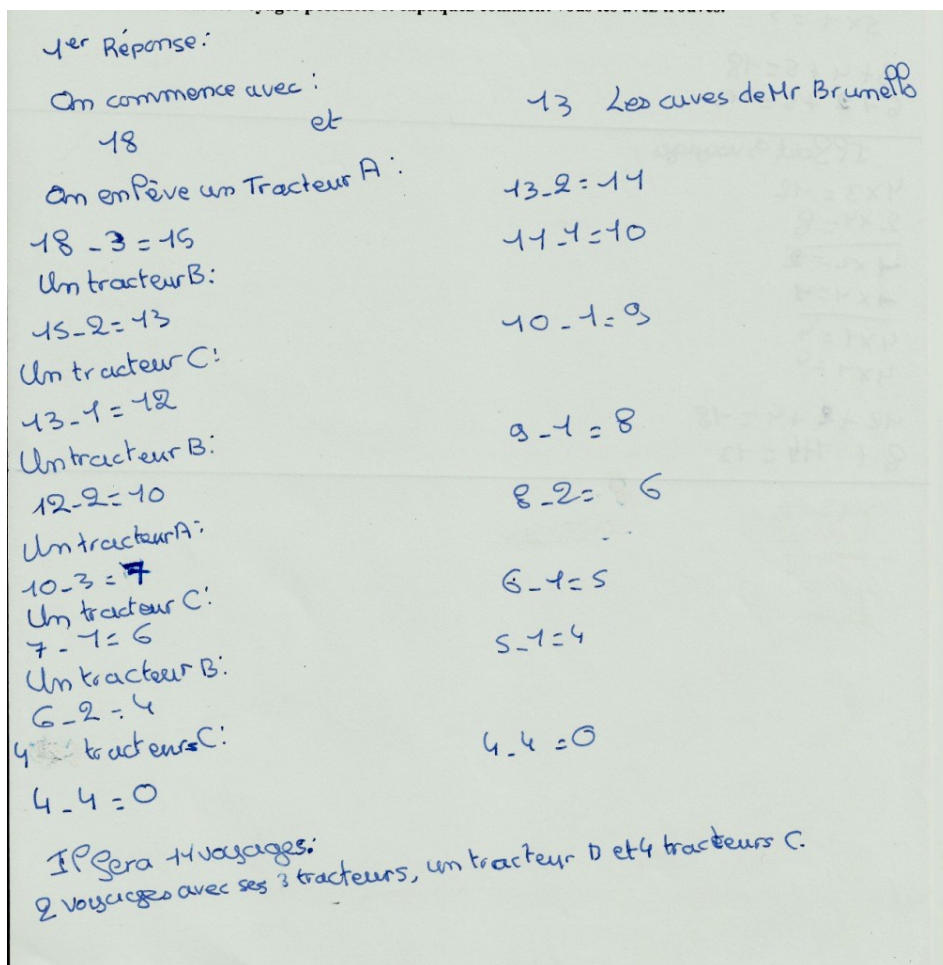 1er Réponse:
On commence avec:
18 et 13 Les cuves de Mr Brunello
On enlève un Tracteur A:
18-3=15 13-2=11
Un tracteur B:
15-2=13 11-1=10
Un tracteur C:
13-1=12 10-1=9
Un tracteur B:
12-2=10 9-1=8
Un tracteur A:
10-3=7 8-2=6
Un tracteur C:
7-1=6 6-1=5
Un tracteur B:
6-2=4 5-1=4
4 tracteurs C:
4-4=0 4-4=0
Il fera 11 voyages:
2 voyages avec ses 3 tracteurs, un tracteur B et 4 tracteurs C.